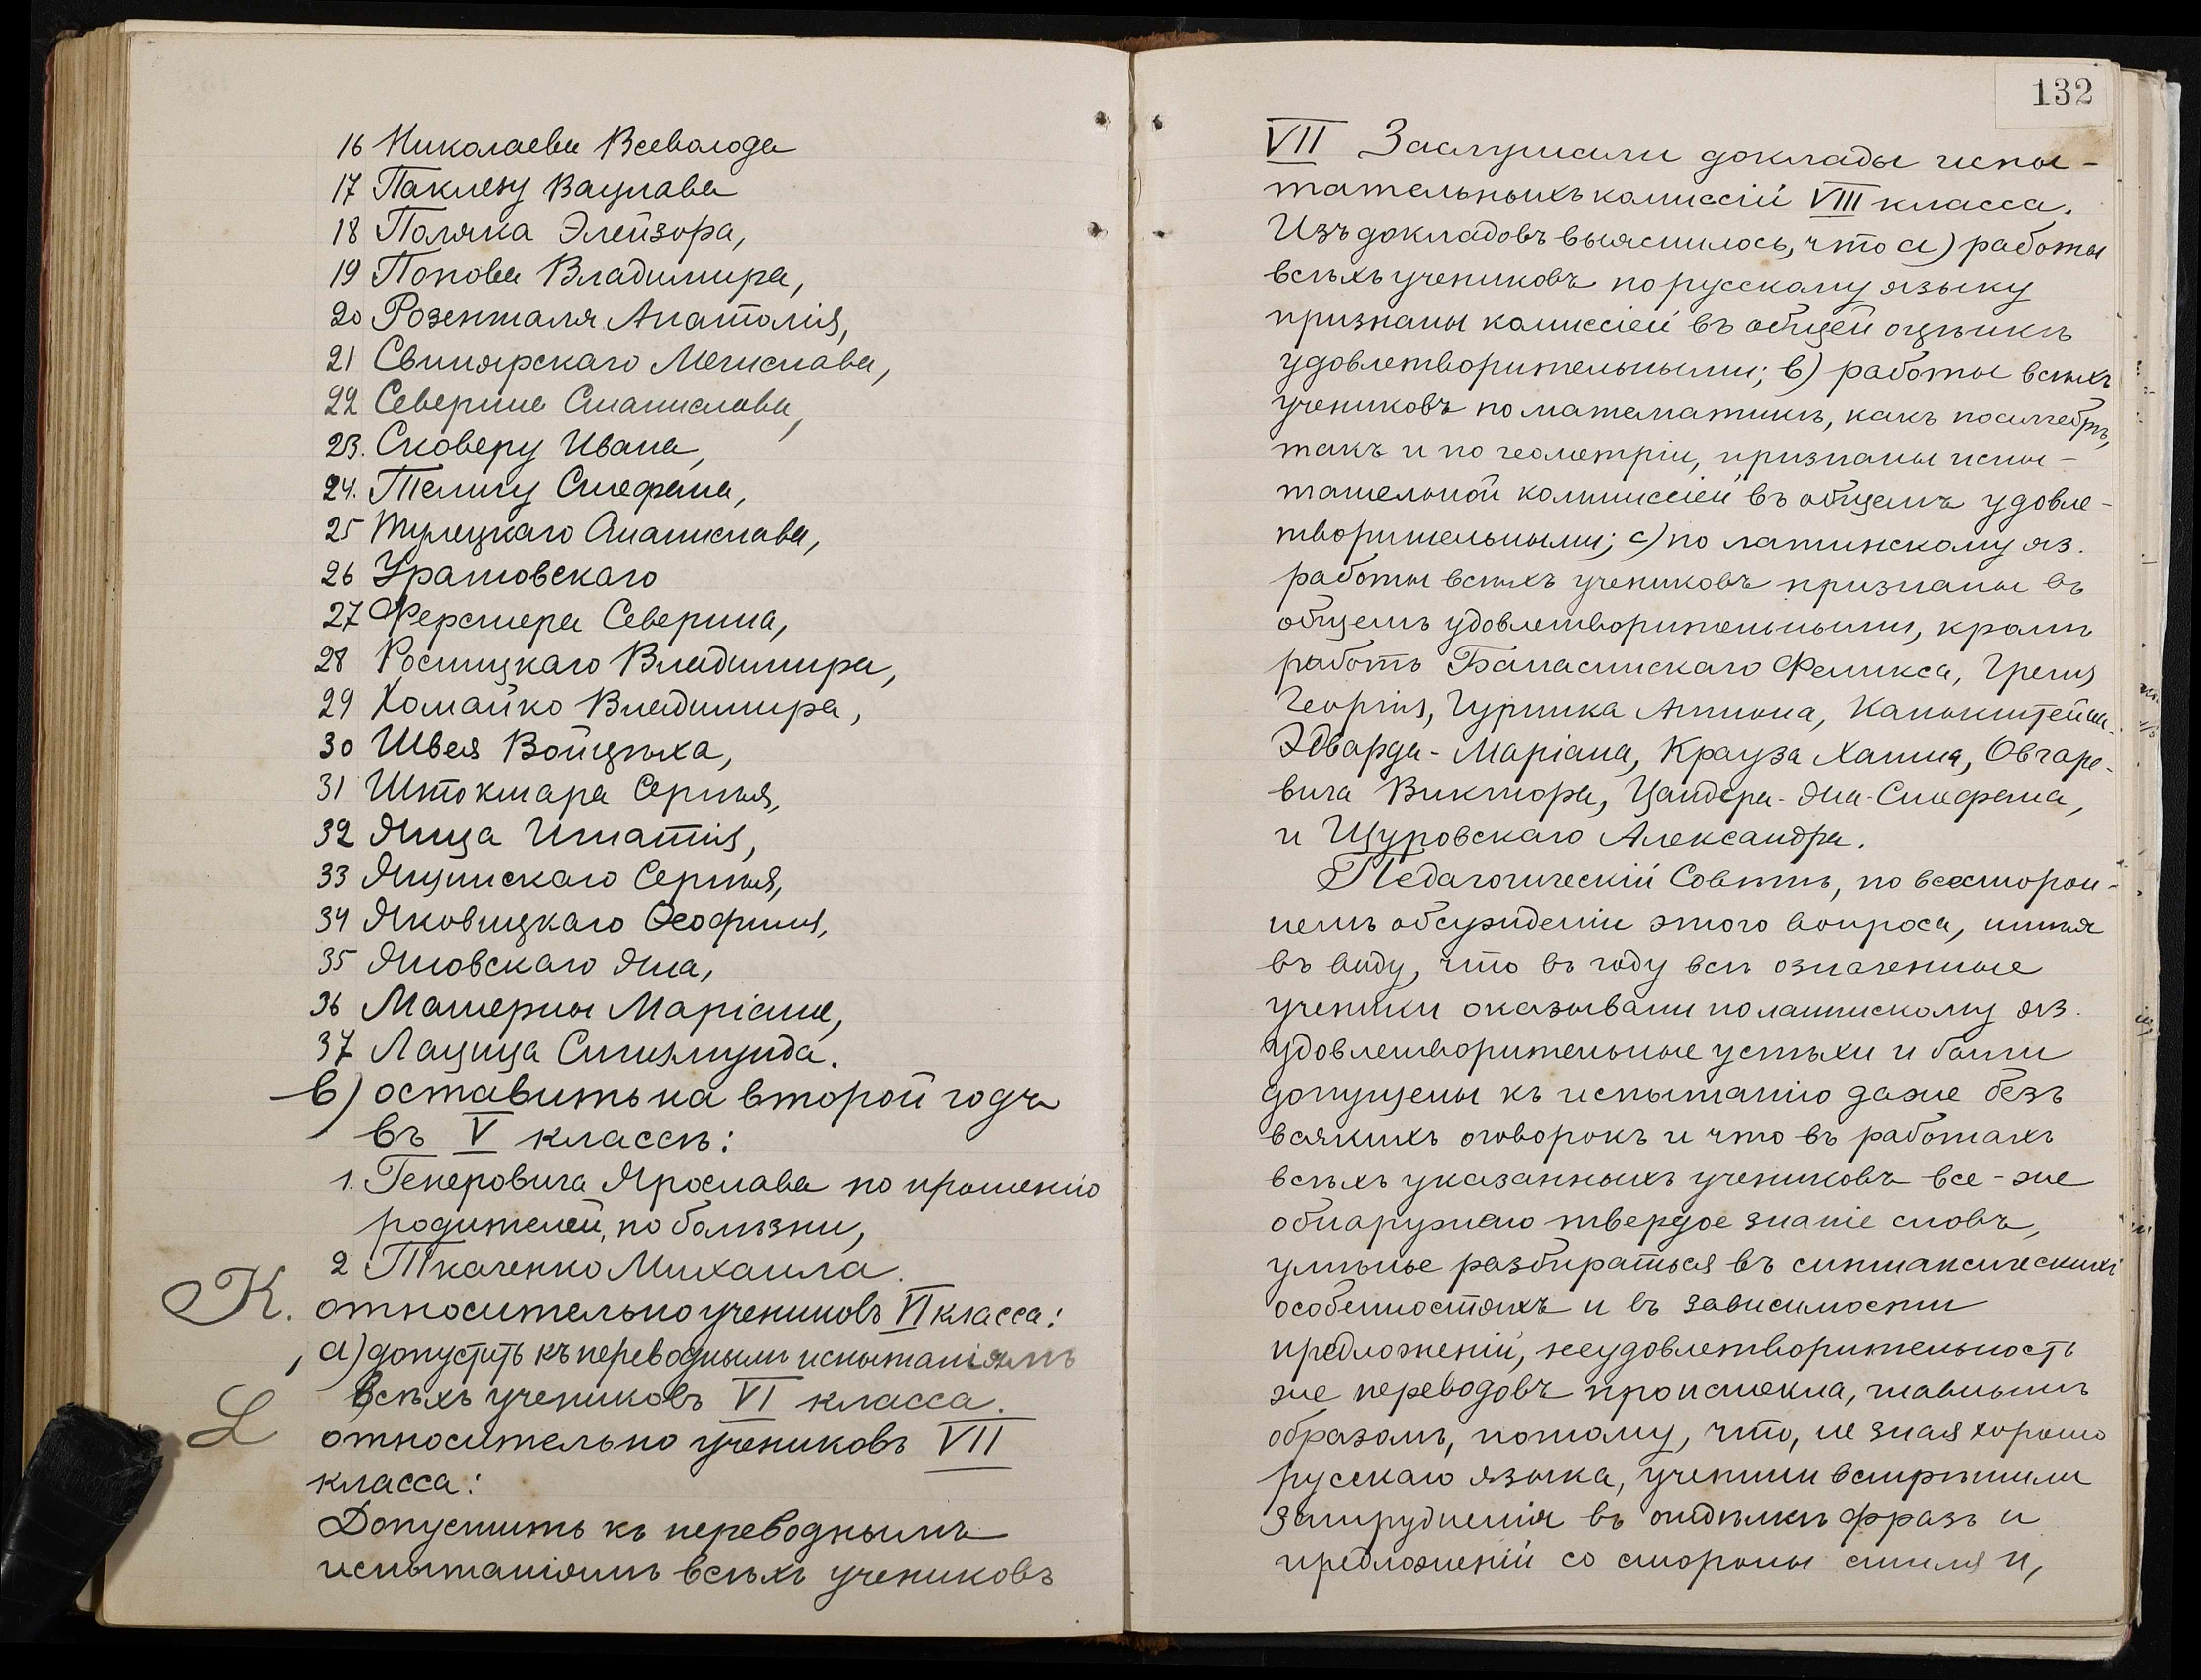 16 Николаева Всеволода
17 Паклезу Вацлава
18 Поляка Элейзора,
19 Попова Владимира,
20 Розенталя Анатолія,
21 Свинярскаго Мечислава,
22 Северина Станислава,
23. Сковеру Ивана,
24. Телицу Стефана,
25 Тулецкаго Станислава,
26 Уратовскаго
27 Ферстера Северина,
28 Ростицкаго Владимира,
29 Хомайко Владимира,
30 Швея Войцѣха,
31 Штокмара Сергѣя,
32 Янца Игнатія,
33 Яцинскаго Сергѣя,
34 Яковицкаго Ѳеофиля,
35 Яновскаго Яна,
36 Матерны Маріана,
37 Лацица Сигизмунда.
в) оставить на второй годъ
въ V классѣ:
1. Генеровича Ярослава по прошенію
родителей, по болѣзни,
2 Ткаченко Михаила.
К. относительно учениковъ VI класса:
а) допустить къ переводнымъ испытаніямъ
всѣхъ учениковъ VI класса.
L относительно учениковъ VII
класса:
Допустить къ переводнымъ
испытаніямъ всѣхъ учениковъ
132
VII Заслушали доклады испы-
тательныхъ комиссій VIII класса.
Изъ докладовъ выяснилось, что а) работы
всѣхъ учениковъ по русскому языку
признаны комиссіей въ общей оцѣнкѣ
удовлетворительными; в) работы всѣхъ
учениковъ по математикѣ, какъ по алгебрѣ,
такъ и по геометріи, признаны испы-
тательной коммиссіей въ общемъ удовле-
творительными; с) по латинскому яз.
работы всѣхъ учениковъ признаны въ
общемъ удовлетворительными, кромѣ
работъ Банасинскаго Феликса, Греля
Георгія, Гурника Антона, Канокштейна-
Эдварда-Маріана, Крауза Хаима, Овчаре-
вича Виктора, Цандера-Яна-Стефана,
и Щуровскаго Александра.
Педагогическій Совѣтъ, по всесторон-
немъ обсужденіи этого вопроса, имѣя
въ виду, что въ году всѣ означенные
ученики оказывали по латинскому яз.
удовлетворительные успѣхи и были
допущены къ испытанію даже безъ
всякихъ оговорокъ и что въ работахъ
всѣхъ указанныхъ учениковъ все-же
обнаружено твердое знаніе словъ,
умѣнье разбираться въ синтаксическихъ
особенностяхъ и въ зависимости
предложеній, неудовлетворительность
же переводовъ проистекла, главнымъ
образомъ, потому, что, не зная хорошо
русскаго языка, ученики встрѣтили
затрудненія въ отдѣлкѣ фразъ и
предложеній со стороны стиля и,